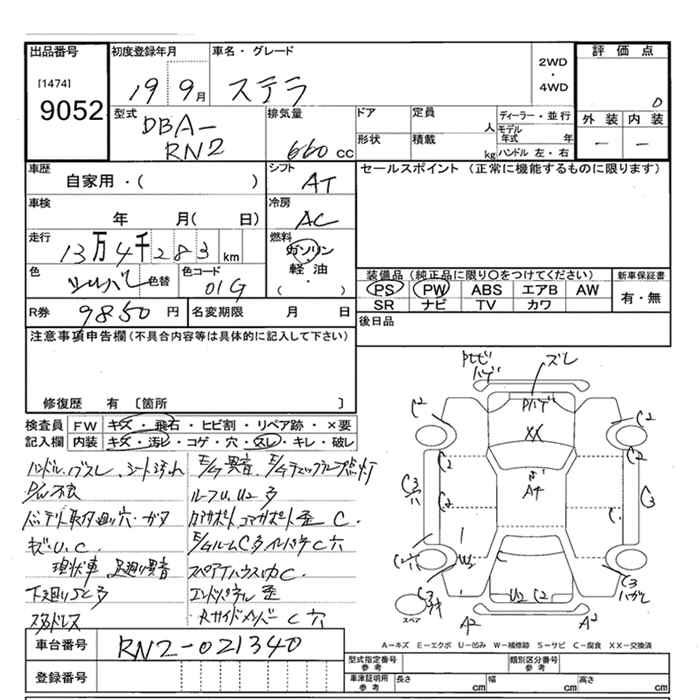 出品番号
[1474]
9052
初度登録年月
19 9月
車名・グレード
ステラ
2WD
・
4WD
評価点
0
外装 内装
— —
型式
DBA-
RN2
排気量
660 cc
ドア
形状
定員
人
積載
kg
ディーラー・並行
モデル年式 年
ハンドル 左・右
車歴
自家用・( )
シフト
AT
セールスポイント (正常に機能するものに限ります)
車検
年 月( 日)
冷房
AC
走行
13万4千283 km
燃料
ガソリン
軽油・
( )
色
シルバー
色替
色コード
01G
装備品 (純正品に限り○をつけてください)
PS PW ABS エアB AW
SR ナビ TV カワ
新車保証書
有・無
R券 9850 円
名変期限 月 日
後日品
注意事項申告欄(不具合内容等は具体的に記入して下さい)
修復歴 有 〔箇所 〕
検査員
記入欄
FW キズ・飛石・ヒビ割・リペア跡・×要
内装 キズ・汚レ・コゲ・穴・スレ・キレ・破レ
ハンドル、
P/W不良
キズ、U、C
現状車 足廻り異音
下廻りSC多
スタッドレス
E/g異音、
ルーフU、U2多
コアサポート
E/gルームC多
スペアタイヤハウス内C
エンドパネル
Rサイドメンバー C穴
ズレ
C2
C2
XX
C2
C2
AT
C3
穴
C3
C
U2 C2
C2
C3
C3
ハガレ
スペア
A2
A2
車台番号 RN2-021340
登録番号
A−キズ E−エクボ U−凹み W−補修跡 S−サビ C−腐食 XX−交換済
型式指定番号
参考
類別区分番号
参考
車庫証明用
参考
長さ cm
幅 cm
高さ cm